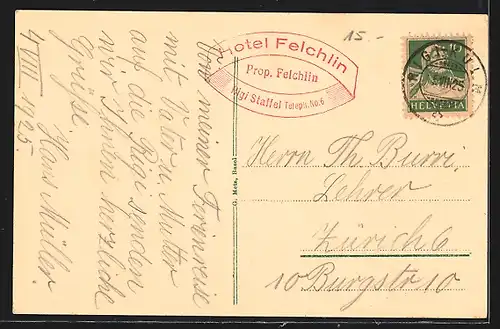 Von meiner Ferienreise
mit Vater u. Mutter
auf die Rigi senden
wir Ihnen herzliche
Grüße
Hans Müller.
4 VIII 1925.
15.-
Hotel Felchlin
Prop. Felchlin
Rigi Staffel Teleph. No. 6
G. Metz, Basel
10
HELVETIA
Herrn Th Burri,
Lehrer
Zürich 6
10 Burgstr 10